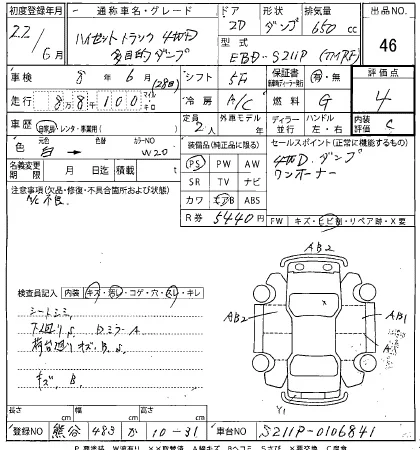 初度登録年月 通称車名・グレード ドア 形状 排気量 出品NO.
22/6月 ハイゼットトラック 4WD 2D ダンプ 650 cc 46
多目的ダンプ 型式 EBD-S211P
車検 8年6月(28日) シフト 5F 保証書 有・無 評価点
走行 88100 km 冷房 A/C 燃料 G 4
車歴 自家用・レンタ・事業用( ) 定員 2人 外車モデル 年 ディーラー 並行 ハンドル 左・右 内装評価 C
色 白→ 色替 カラーNO W20 装備品(純正品に限る) セールスポイント(正常に機能するもの)
名義変更期限 月 日迄 積載 t PS PW AW 4WD.ダンプ
注意事項(欠品・修復・不具合箇所および状態) SR TV ナビ ワンオーナー
A/C不良. カワ エアB ABS
R券 5440円 FW キズ・ヒビ割・リペア跡・X要
検査員記入 内装 キズ・汚レ・コゲ・穴・スレ・キレ
シートシミ
下廻りS Dミラー A
荷台廻り キズ.B.S
キズ B
AB2
AB2 X AB1
A
Y1
長さ cm 幅 cm 高さ cm
登録NO 熊谷 483 が 10-31 車台NO S211P-0106841